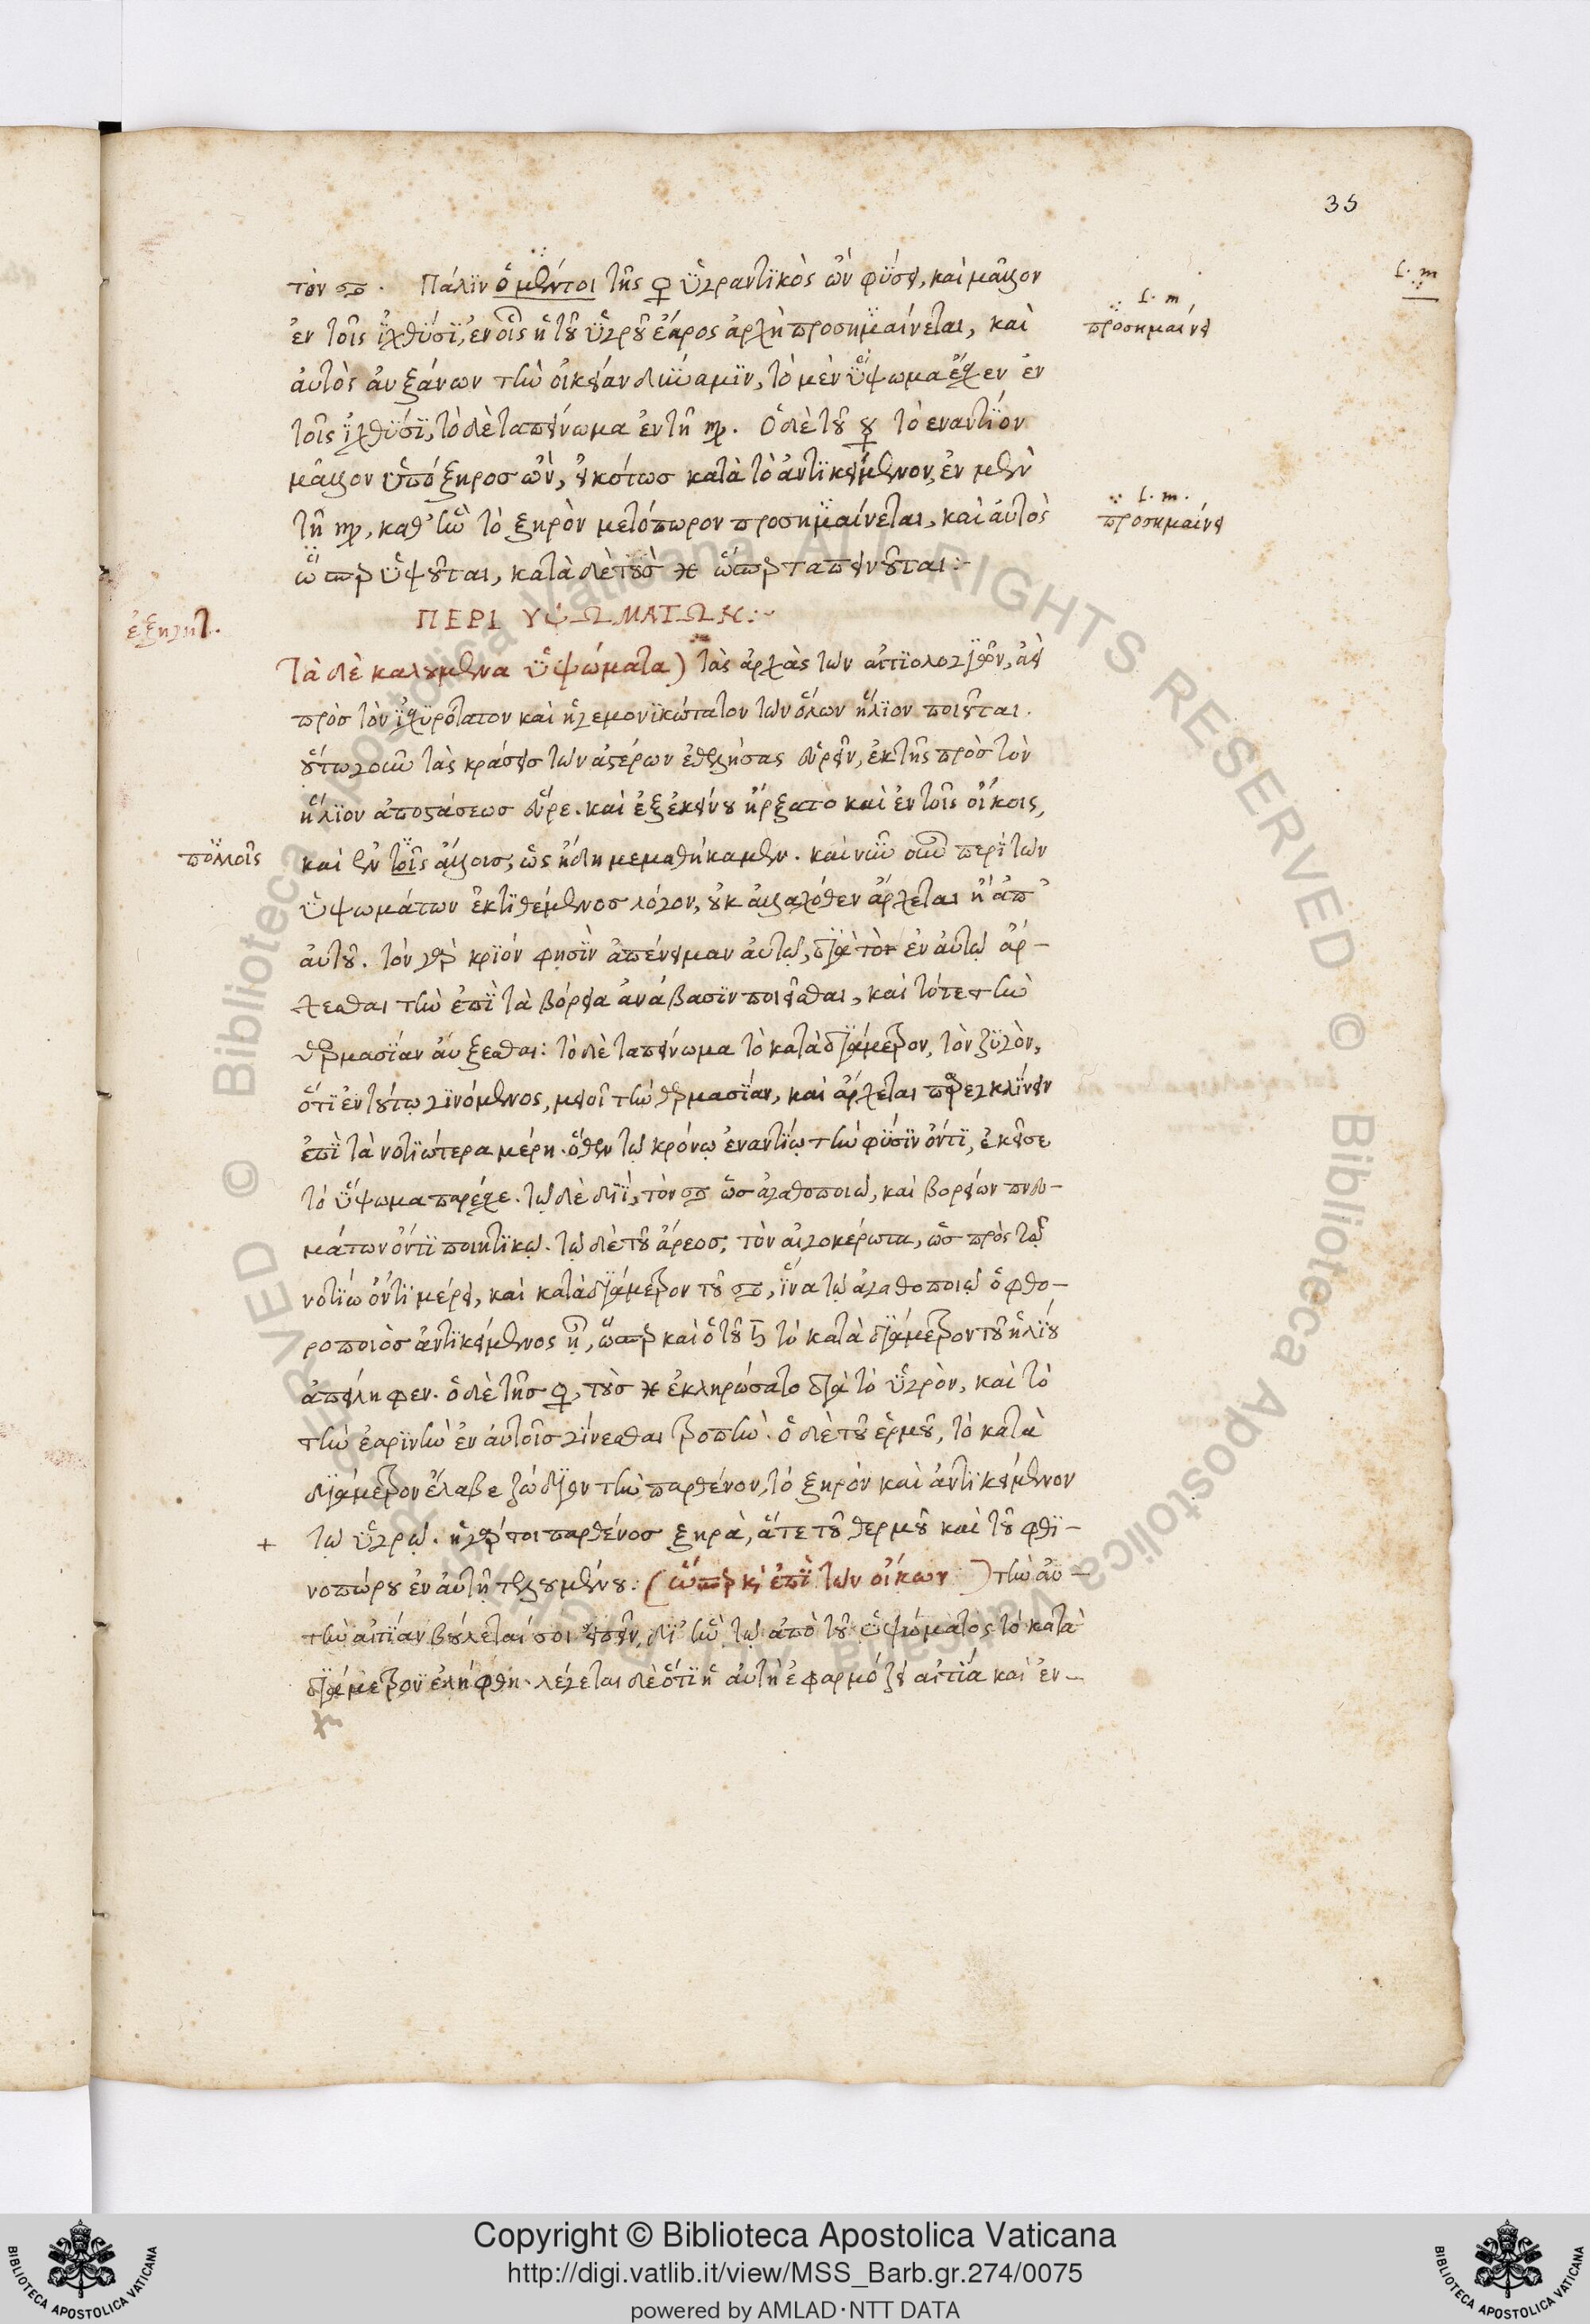 35
τὸν ♋. Πάλϊν ὁ μέντοι τῆς ♀ ὑγραντϊκὸς ὢν φύσει, καὶ μᾶλλον
ἐν τοῖς ἰχθύσϊ, ἐν οἷς ἡ τοῦ ὑγροῦ ἔαρος ἀρχὴ προσημαίνεται, καὶ
αὐτὸς αὐξάνων τὴν οἰκείαν δύναμϊν, τὸ μὲν ὕψωμα ἔσχεν ἐν
τοῖς ἰχθύσϊ, τὸ δὲ ταπείνωμα ἐν τῇ ♍. Ὁ δὲ τοῦ ☿ τὸ εναντίον
μᾶλλον ὑπόξηρος ὢν, εἰκότως κατὰ τὸ ἀντϊκείμενον, ἐν μὲν
τῇ ♍, καθ' ἣν τὸ ξηρὸν μετόπωρον προσημαίνεται, καὶ αὐτὸς
ὥσπερ ὑψοῦται, κατὰ δὲ τοὺς ♓ ὥσπερ ταπεινοῦται:
L. m
L. m
προσημαίνει
L. m.
προσημαίνει
ΠΕΡΙ ΥΨΩΜΑΤΩΝ:
ἐξηγητ.
Τὰ δὲ καλούμενα ὑψώματα) τὰς ἀρχὰς τῶν αἰτϊολογϊῶν, ἀεὶ
πρὸς τὸν ἰσχυρότατον καὶ ἡγεμονϊκώτατον τῶν ὅλων ἥλϊον ποιεῖται.
οὕτω γοῦν τὰς κράσεις τῶν ἀστέρων ἐθελήσας εὑρεῖν, ἐκ τῆς πρὸς τὸν
ἥλϊον ἀποστάσεως εὗρε. καὶ ἐξ ἐκείνου ἤρξατο καὶ ἐν τοῖς οἴκοις,
καὶ ἐν τοῖς ἄλλοις, ὡς ἤδη μεμαθήκαμεν. καὶ νῦν οὖν περὶ τῶν
πολλοῖς
ὑψωμάτων ἐκτϊθέμενος λόγον, οὐκ ἀλλαχόθεν ἄρχεται ἢ ἀπ'
αὐτοῦ. τὸν γὰρ κρϊόν φησϊν ἀπένειμαν αὐτῷ, δϊὰ τὸ ἐν αὐτῷ ἄρ-
χεσθαι τὴν ἐπὶ τὰ βόρεια ἀνάβασϊν ποιεῖσθαι, καὶ τότε τὴν
θερμασίαν αὔξεσθαι: τὸ δὲ ταπείνωμα τὸ κατὰ δϊάμετρον, τὸν ζυγὸν,
ὅτϊ ἐν τούτῳ γινόμενος, μειοῖ τὴν θερμασίαν, καὶ ἄρχεται παρεγκλίνειν
ἐπὶ τὰ νοτϊώτερα μέρη. ὅθεν τῷ κρόνῳ ἐναντίῳ τὴν φύσϊν ὄντϊ, ἐκεῖσε
τὸ ὕψωμα παρέσχε. τῷ δὲ διΐ, τὸν ♋ ὡς ἀγαθοποιῷ, καὶ βορείων πνευ-
μάτων ὄντϊ ποιητϊκῷ. τῷ δὲ τοῦ ἄρεος, τὸν αἰγοκέρωτα, ὡς πρὸς τῷ
νοτίῳ ὄντϊ μέρει, καὶ κατὰ δϊάμετρον τοῦ ♋, ἵνα τῷ ἀγαθοποιῷ ὁ φθο-
ροποιὸς ἀντϊκείμενος ᾖ, ὥσπερ καὶ ὁ τοῦ ♄ τὸ κατὰ δϊάμετρον τοῦ ἡλίου
ἀπείληφεν. ὁ δὲ τῆς ♀, τοὺς ♓ ἐκληρώσατο δϊὰ τὸ ὑγρὸν, καὶ τὸ
τὴν ἐαρϊνὴν ἐν αὐτοῖς γίνεσθαι τροπὴν. ὁ δὲ τοῦ ἑρμοῦ, τὸ κατὰ
δϊάμετρον ἔλαβε ζώδϊον τὴν παρθένον, τὸ ξηρὸν καὶ ἀντϊκείμενον
+ τῷ ὑγρῷ. ἡ γάρ τοι παρθένος ξηρὰ, ἅτε τοῦ θερμοῦ καὶ τοῦ φθϊ-
νοπώρου ἐν αὐτῇ τελουμένου: (ὥσπερ κ̀ ἐπὶ τῶν οἴκων) τὴν αὐ-
τὴν αἰτίαν βούλεταί σοι εἰπεῖν, δι' ἣν τῷ ἀπὸ τοῦ ὑψώματος τὸ κατὰ
δϊάμετρον ἐλήφθη. λέγεται δὲ ὅτϊ ἡ αὐτὴ ἐφαρμόζει αἰτία καὶ ἐν-
Copyright © Biblioteca Apostolica Vaticana
http://digi.vatlib.it/view/MSS_Barb.gr.274/0075
powered by AMLAD·NTT DATA